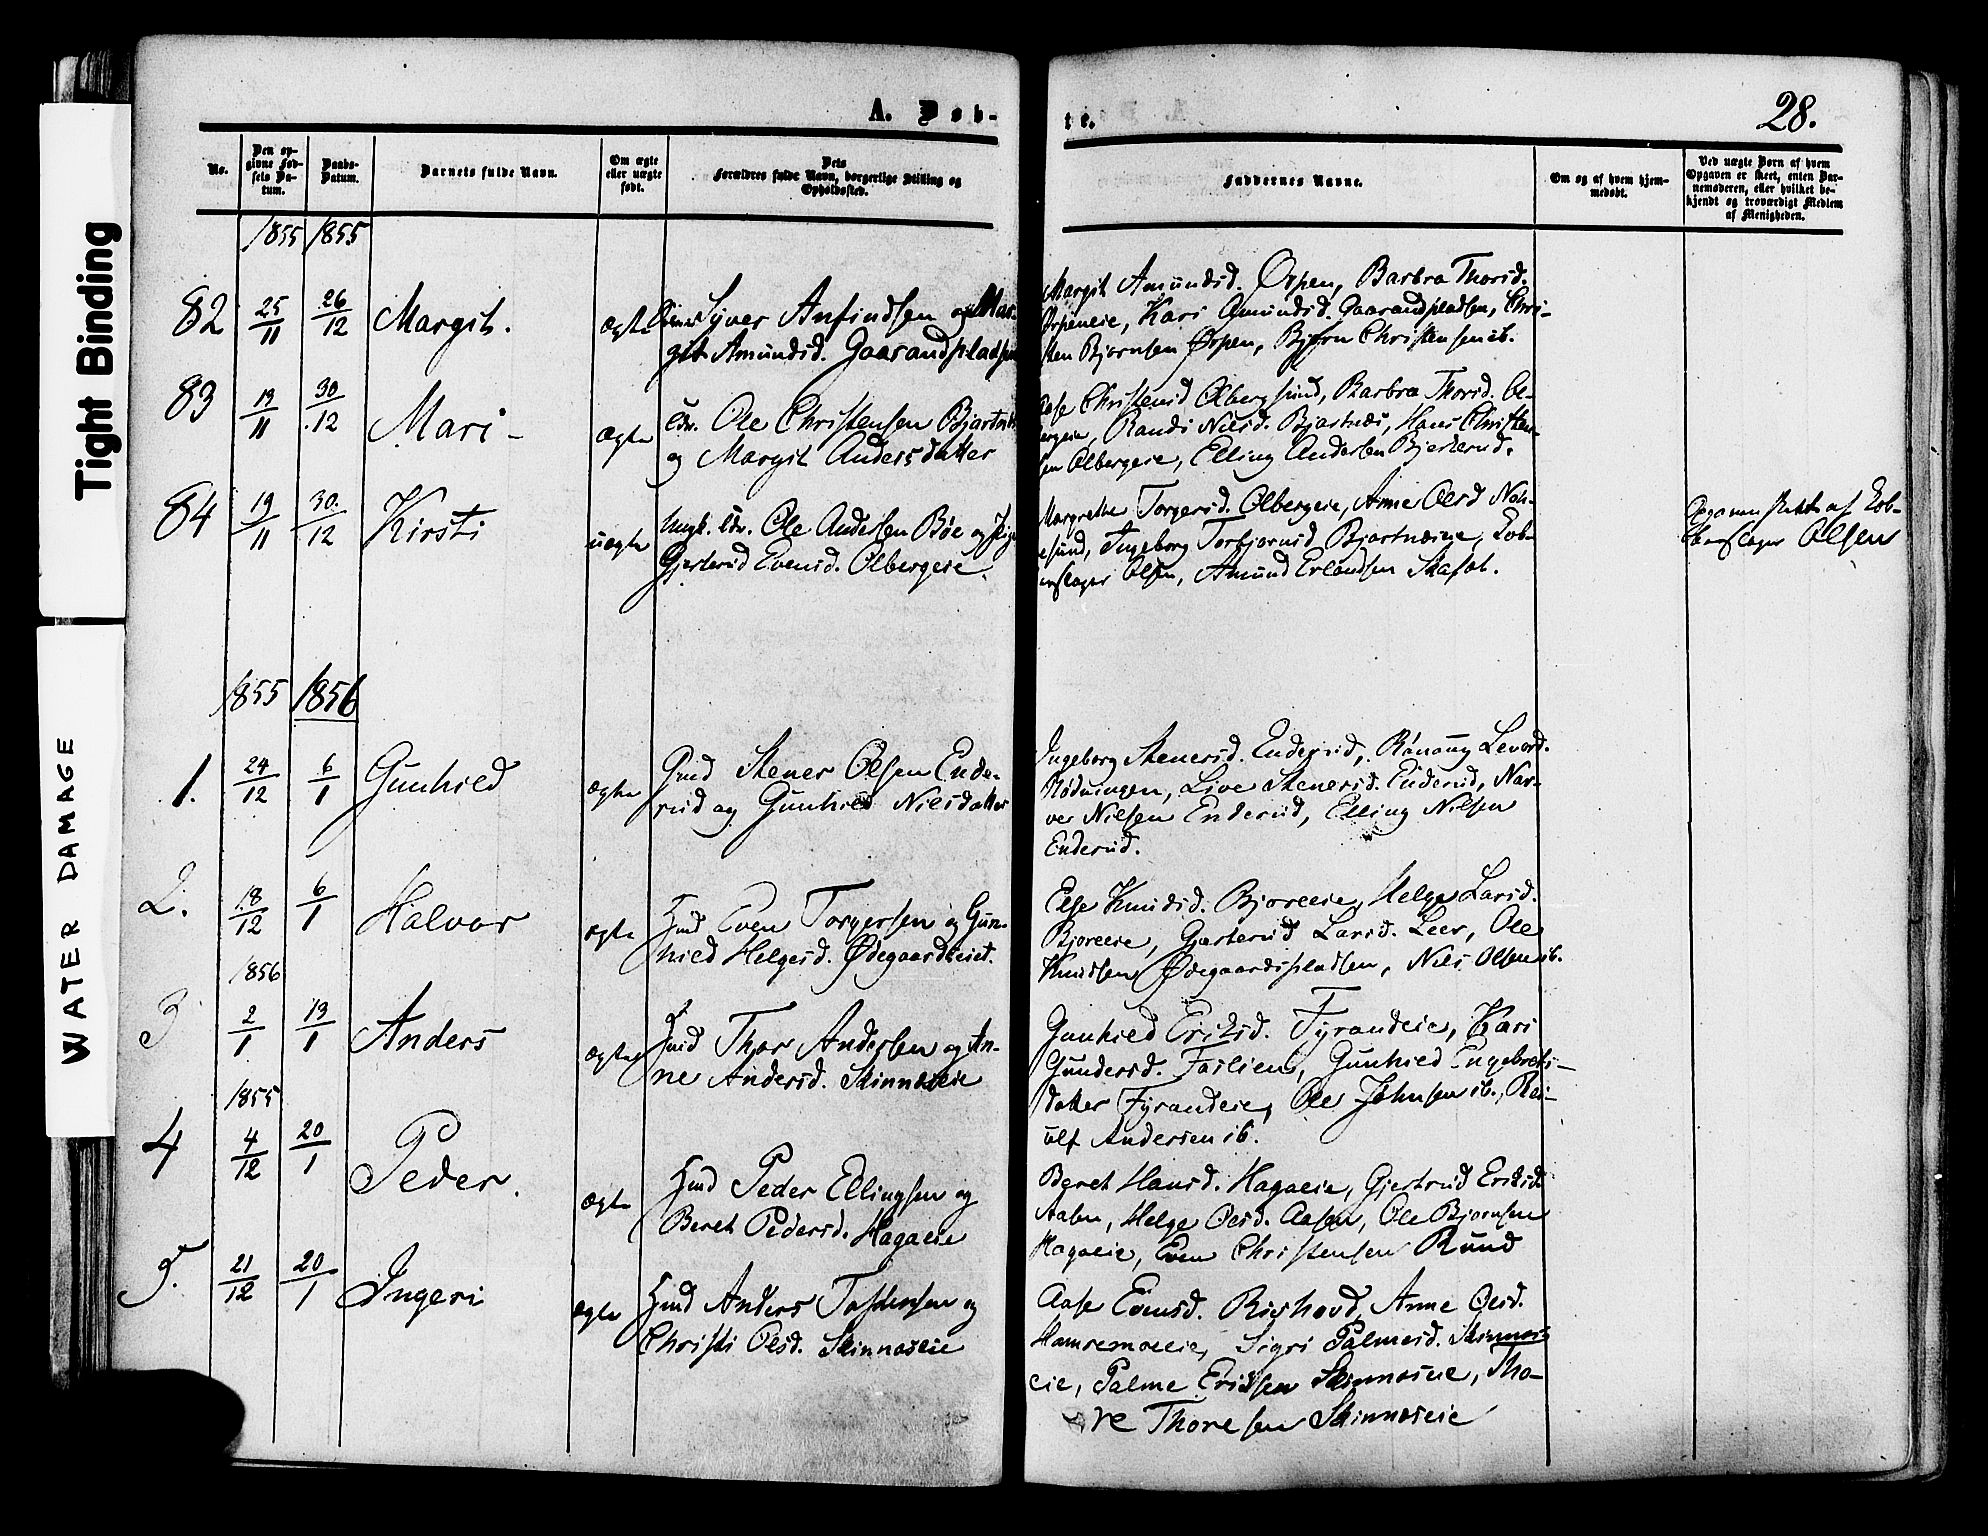 Tight Binding
WATER DAMAGE
A. Døb-
te.
28.
No.
Den op-
givne Fød-
sels Da-
tum.
Daabs-
Datum.
Barnets fulde Navn.
Om ægte
eller uægte
født.
Dets
Forældres fulde Navn, borgerlige Stilling og
Opholdssted.
Faddernes Navne.
Om og af hvem hjem-
medøbt.
Ved uægte Børn af hvem
Opgaven er skeet, enten Bar-
nemoderen, eller hvilket be-
kjendt og troværdigt Medlem
af Menigheden.
1855 1855
82 25/11 26/12 Margit. ægte Syver Anfindsen og Mar-
git Amundsd. Gaarandspladsen
Margit Amundsd. Ørpen, Barbra Thorsd.
Ørpeneie, Kari Amundsd. Gaarandpladsen, Chri-
sten Bjørnsen Ørpen, Bjørn Christensen ib.
83 13/11 30/12 Mari - ægte Ole Christensen Bjertnes
og Margit Andersdatter
Aase Christensd Olbergsund, Barbra Thorsd. Ol-
bergeie, Randi Nilsd. Bjertnæs, Hans Christen-
sen Olbergeie, Elling Andersen Bjertnes.
84 19/11 30/12 Kirsti uægte Ungk. Ole Andersen Bøe og Pige
Gjertrud Evensd. Olbergeie.
Margrethe Torgersd. Olbergeie, Anne Olsd
Ingeborg Torbjørnsd Bjertnæseie, Kob-
berslager Olsen, Amund Erlandsen
Opgaven af Kob-
berslager Olsen
1855 1856
1. 24/12 6/1 Gunhild ægte Gmd Stener Olsen Ende-
rud og Gunhild Nilsdatter
Ingeborg Stenersd. Enderud, Rønnaug Levord.
Rødningen, Live Stenersd. Enderud, Nar-
ver Nilsen Enderud, Elling Nilsen
Enderud.
2. 18/12 6/1 Halvor ægte Hmd Even Torgersen og Gun-
hild Helgesd. Ødegaardseiet.
Else Knudsd. Bjoreeie, Helge Larsd.
Bjoreeie, Gjertrud Larsd. Leer, Ole
Knudsen Ødegaardspladsen, Nils Olsen ib.
1856
3 2/1 13/1 Anders ægte Hmd Thor Andersen og An-
ne Andersd. Skinnæseie
Gunhild Eriksd. Fyrandeie, Kari
Gundersd. Faslien, Gunhild Engebrets-
datter Fyrandeie, Ole Johnsen ib., Rei-
ulf Andersen ib.
1855
4 4/12 20/1 Peder. ægte Hmd Peder Ellingsen og
Beret Pedersd. Hagaeie
Beret Hansd. Hagaeie, Gjertrud Eriksd.
Aasen, Helge Olsd. Aasen, Ole Bjørnsen
Hagaeie, Even Christensen Ruud
5. 21/12 20/1 Ingeri ægte Hmd Anders Torstensen og
Christi Olsd. Skinnæseie
Aase Evensd. Rishovd, Anne Olsd.
Hamremoeeie, Sigri Palmesd. Skinnæs-
eie, Palme Eriksen Skinnæseie, Tho-
re Thoresen Skinnæseie